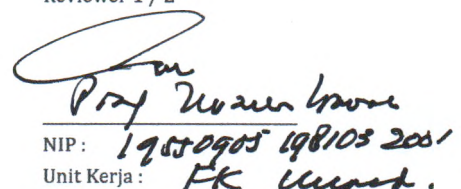 Reviewer 1 / 2
Prof
NIP : 19550905 198103 2001
Unit Kerja : FK Unand.